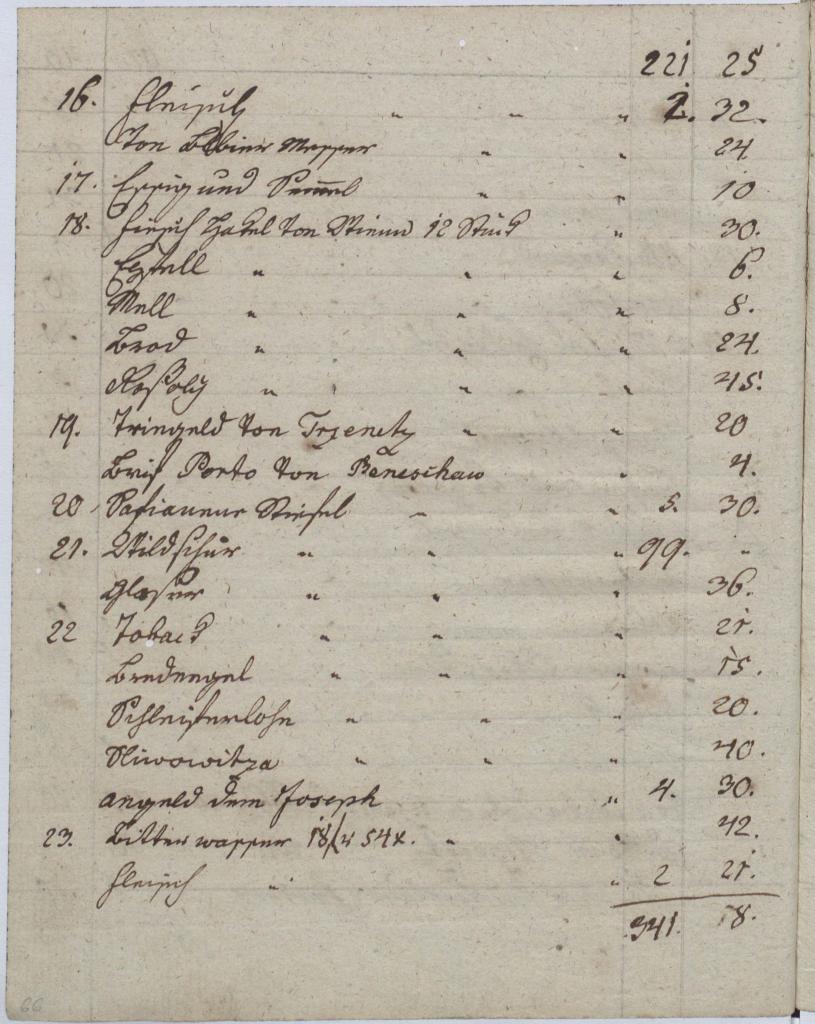 221. 25
16. Fleisch " " " 2. 32.
Von Balbier Messer " " 24
17. Essig und Semmel " " 10
18. Hirsch Hakel von Wienn 12 Stück " 30.
" " " 6.
Mell " " " 8.
Brod " " " 24.
Rosoly " " " 45.
19. Tringeld von Trzenetz " " 20
Brif Porto von Beneschau " 4.
20 Safianene Stiefel " " 5. 30.
21. Wildschur " " " 99. "
Glaser " " " 36.
22 Toback " " " 21.
" " " 15.
Schleiferlohn " " " 20.
Sliwowitza " " " 40.
angeld dem Joseph " 4. 30.
23. Bitter wasser 18/ 54x. " " 42.
Fleisch " " 2 21.
341. 8.
66